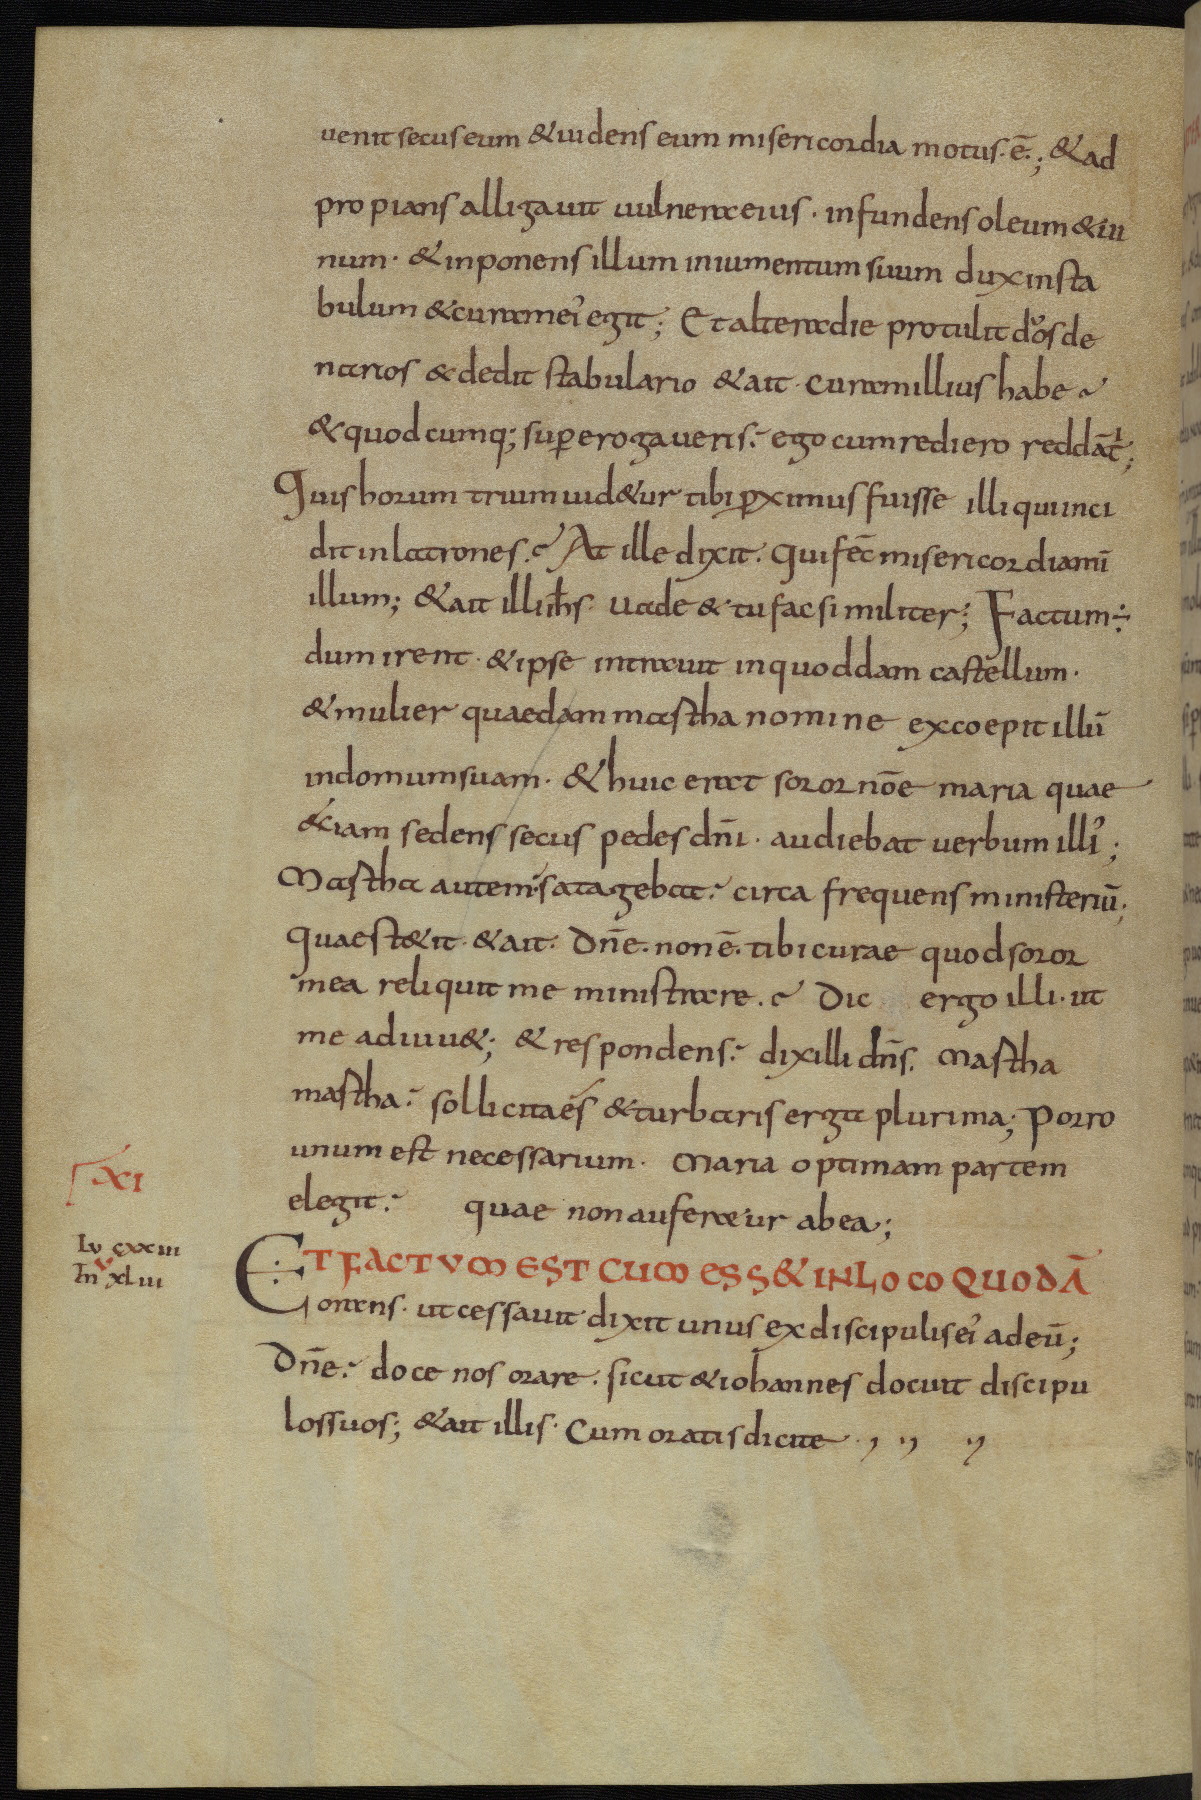 uenit secus eum & uidens eum misericordia motus · ē ·; & ad
propians alligauit uulnera eius · infundens oleum & ui
num · & inponens illum iniumentum suum dux insta
bulum & curam ei' egit; Et altera die protulit duos de
narios & dedit stabulario & ait · curam illius habe
& quodcumq; sup̄erogaueris · ego cum rediero reddā t';
Quis horum trium uid&ur tibi ꝓximus fuisse illi qui inci
dit in latrones · At ille dixit · qui fec̄ misericordiam ī
illum; & ait illi ih̄s · Uade & tu fac similiter; Factum ÷
dum irent · & ipse intrauit in quoddam castellum ·
& mulier quaedam mastha nomine excoepit illū
in domum suam · & huic erat soror nōe maria quae
&iam sedens secus pedes dn̄i · audiebat uerbum illi';
Mastha autem satagebat · circa frequens ministeriū;
quae st&it · & ait · Dn̄e · non ē · tibi curae quod soror
mea reliquit me ministrare · Dic ergo illi · ut
me adiuu&; & respondens · dix illi dn̄s · Mastha
mastha · sollicita és & turbaris erga plurima; Porro
unum est necessarium · Maria optimam partem
elegit · quae non aufer&ur ab ea;
XI
Lu cxxiii
Mt xliii
ET FACTUM EST CUM ESS& IN LOCO QUODĀ
orans · ut cessauit dixit unus ex discipulis ei' ad eū;
Dn̄e · doce nos orare · sicut & iohannes docuit discipu
los suos; & ait illis · Cum oratis dicite